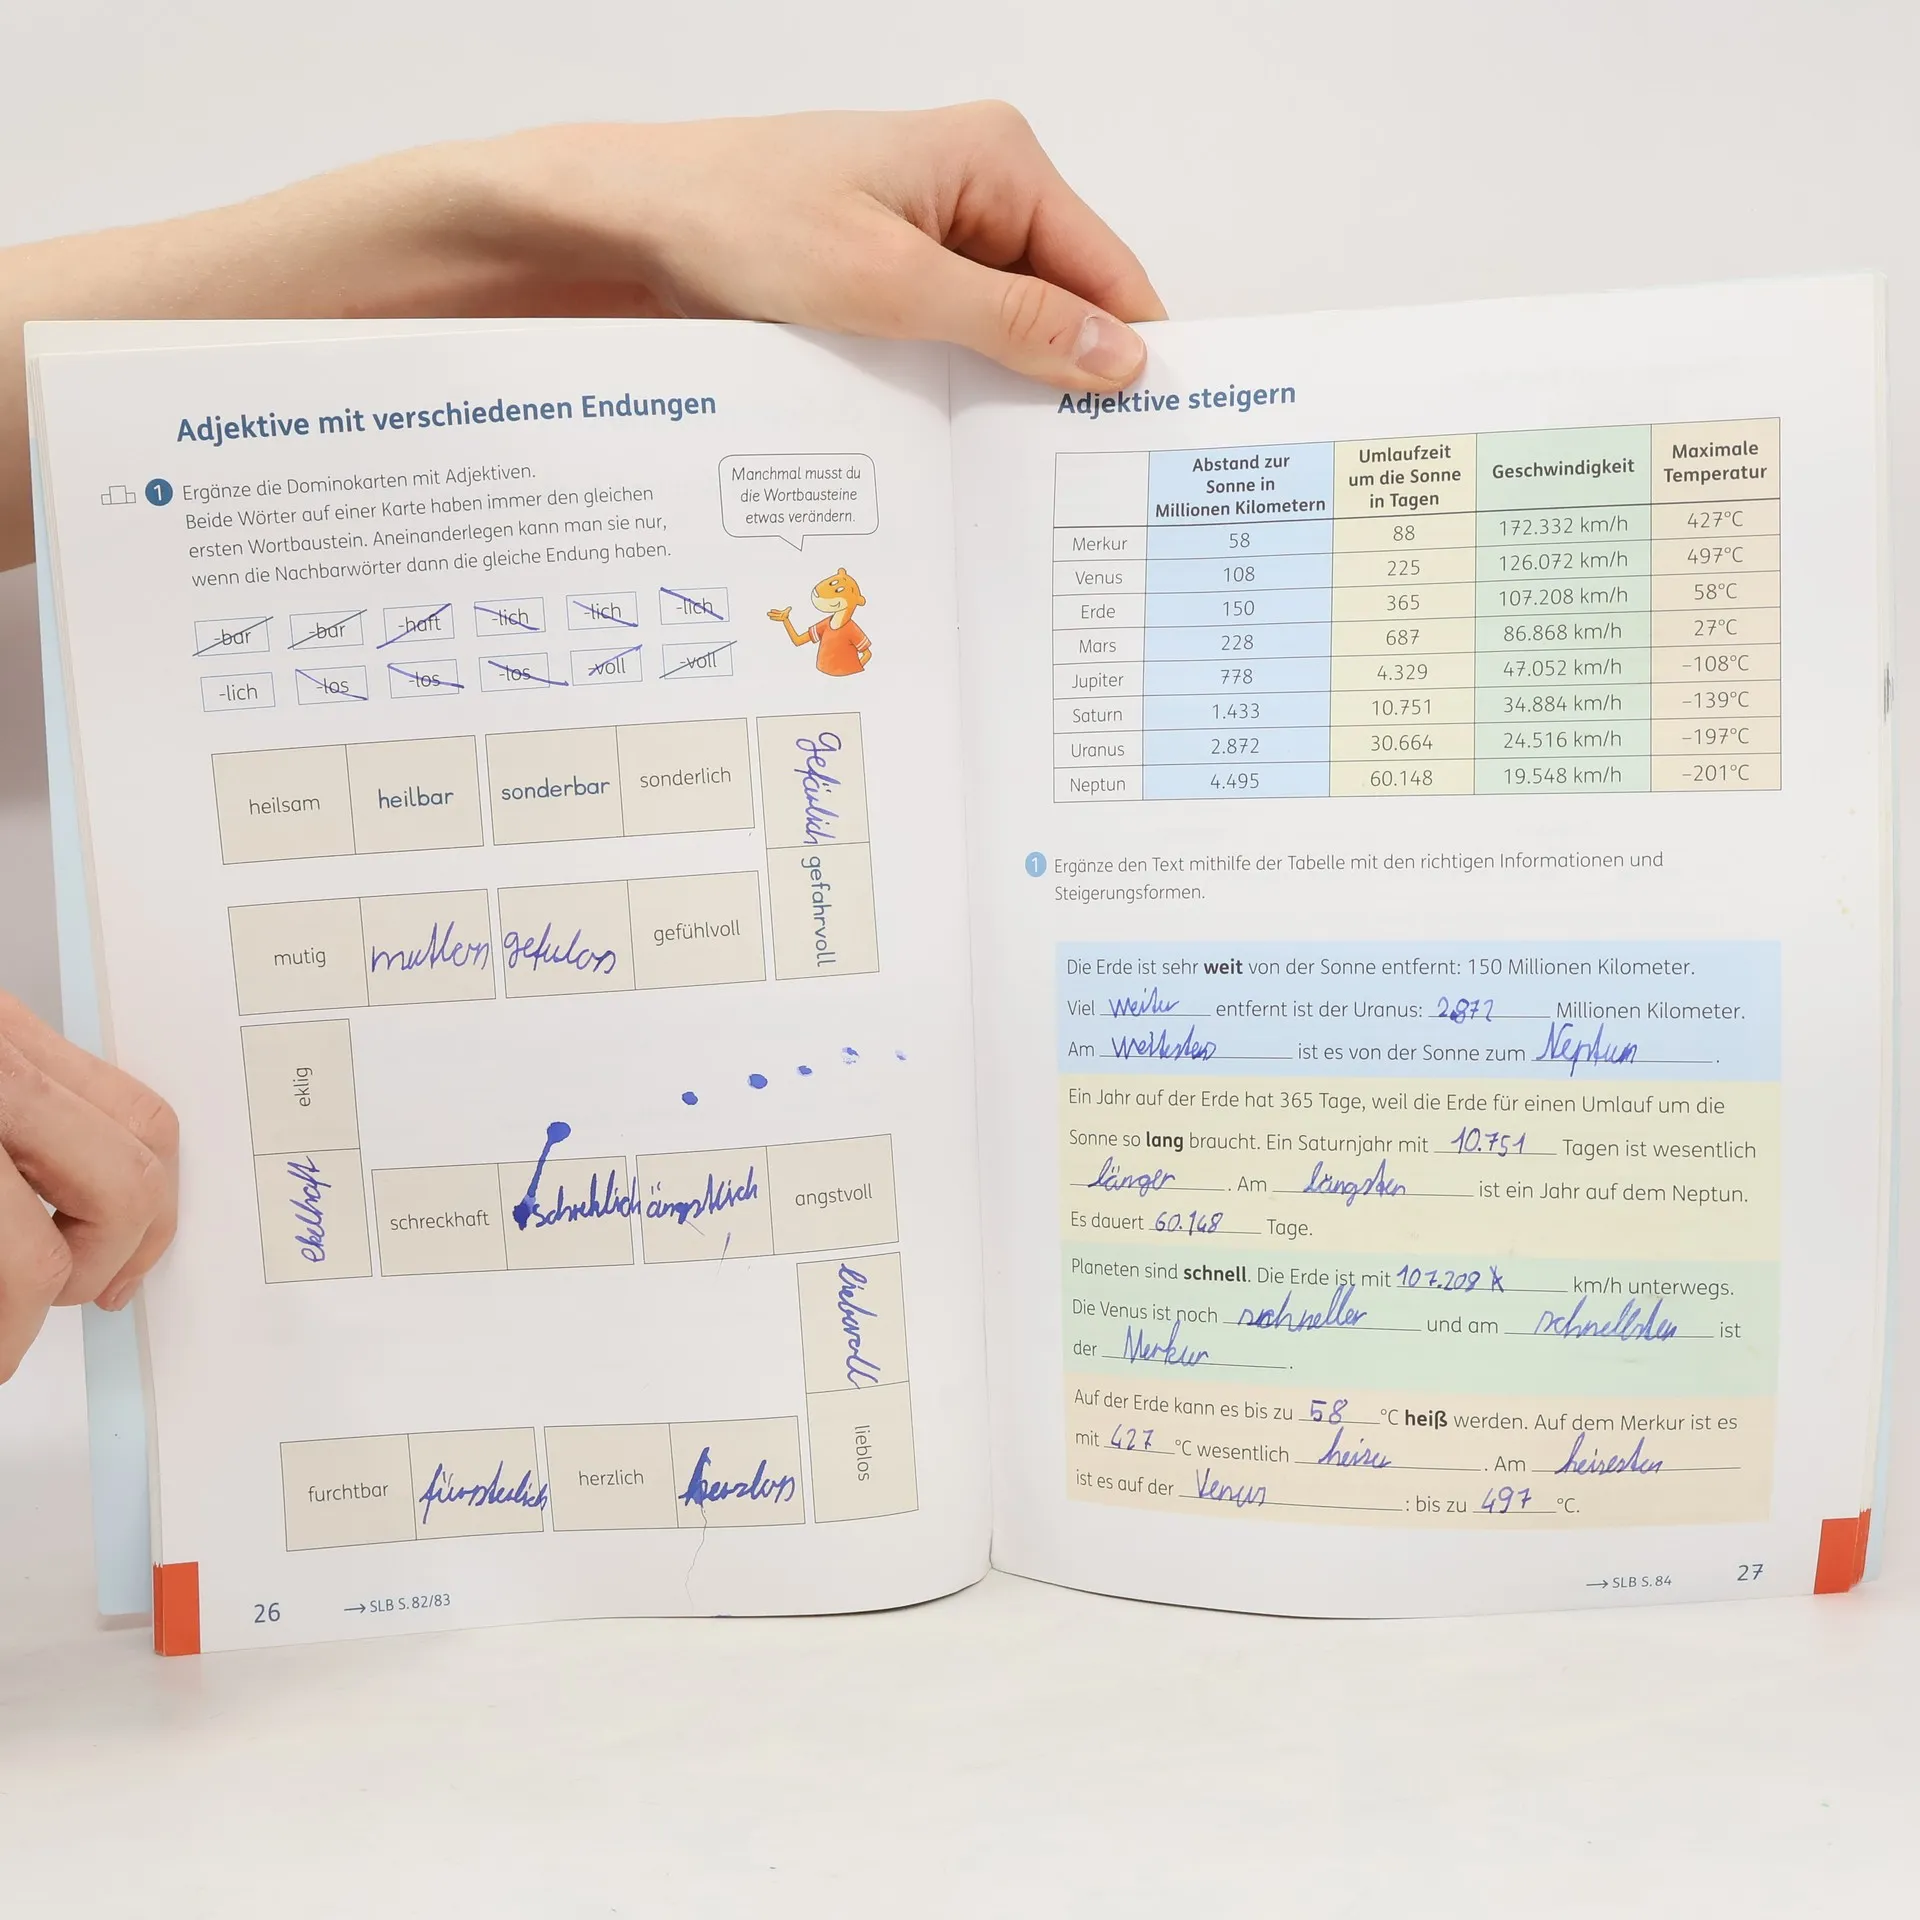 Adjektive mit verschiedenen Endungen
1 Ergänze die Dominokarten mit Adjektiven.
Beide Wörter auf einer Karte haben immer den gleichen
ersten Wortbaustein. Aneinanderlegen kann man sie nur,
wenn die Nachbarwörter dann die gleiche Endung haben.
Manchmal musst du
die Wortbausteine
etwas verändern.
-bar -bar -haft -lich -lich -lich
-lich -los -los -los -voll -voll
heilsam heilbar sonderbar sonderlich
gefahrvoll
mutig mutlos gefulos gefühlvoll
eklig
ekelhaft
schreckhaft schreklich ängstlich angstvoll
liebevoll
lieblos
furchtbar herzlich herzlos
26 → SLB S. 82/83
Adjektive steigern
Abstand zur Sonne in Millionen Kilometern Umlaufzeit um die Sonne in Tagen Geschwindigkeit Maximale Temperatur
Merkur 58 88 172.332 km/h 427°C
Venus 108 225 126.072 km/h 497°C
Erde 150 365 107.208 km/h 58°C
Mars 228 687 86.868 km/h 27°C
Jupiter 778 4.329 47.052 km/h –108°C
Saturn 1.433 10.751 34.884 km/h –139°C
Uranus 2.872 30.664 24.516 km/h –197°C
Neptun 4.495 60.148 19.548 km/h –201°C
1 Ergänze den Text mithilfe der Tabelle mit den richtigen Informationen und
Steigerungsformen.
Die Erde ist sehr weit von der Sonne entfernt: 150 Millionen Kilometer.
Viel weiter entfernt ist der Uranus: 2.872 Millionen Kilometer.
Am weitesten ist es von der Sonne zum Neptun.
Ein Jahr auf der Erde hat 365 Tage, weil die Erde für einen Umlauf um die
Sonne so lang braucht. Ein Saturnjahr mit 10.751 Tagen ist wesentlich
länger. Am längsten ist ein Jahr auf dem Neptun.
Es dauert 60.148 Tage.
Planeten sind schnell. Die Erde ist mit 107.208 km/h unterwegs.
Die Venus ist noch schneller und am schnellsten ist
der Merkur.
Auf der Erde kann es bis zu 58 °C heiß werden. Auf dem Merkur ist es
mit 427 °C wesentlich heiser. Am heisesten
ist es auf der Venus: bis zu 497 °C.
→ SLB S. 84 27